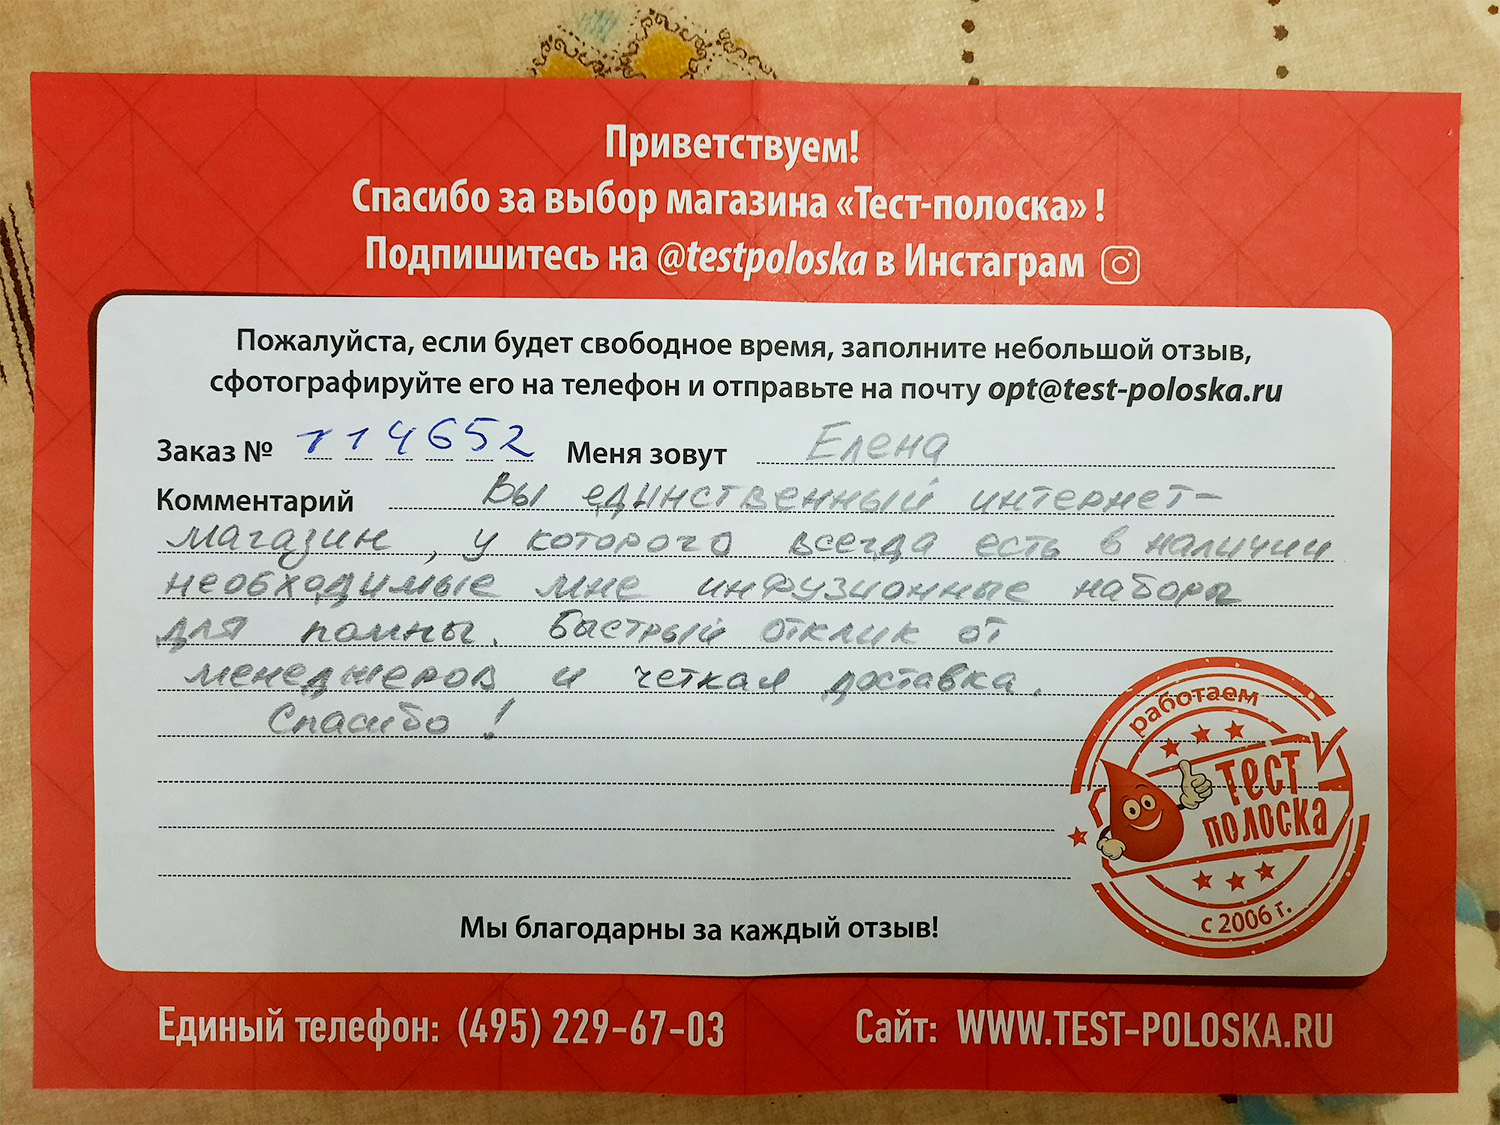 Приветствуем!
Спасибо за выбор магазина «Тест-полоска» !
Подпишитесь на @testpoloska в Инстаграм
Пожалуйста, если будет свободное время, заполните небольшой отзыв,
сфотографируйте его на телефон и отправьте на почту opt@test-poloska.ru
Заказ № 114652 Меня зовут Елена
Комментарий Вы единственный интернет-
магазин, у которого всегда есть в наличии
необходимые мне инфузионные наборы
для помпы. Быстрый отклик от
менеджеров и четкая доставка.
Спасибо!
работаем
тест
полоска
с 2006 г.
Мы благодарны за каждый отзыв!
Единый телефон: (495) 229-67-03 Сайт: WWW.TEST-POLOSKA.RU